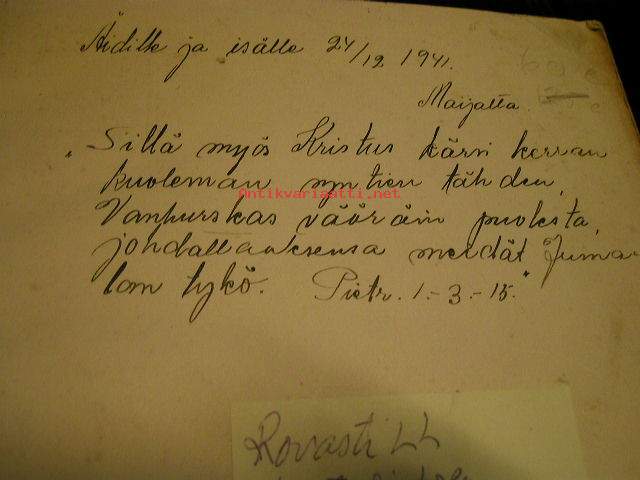 Äidille ja isälle 24/12 1941.
Maijatta
"Sillä myös Kristus kärsi kerran
kuoleman syntien tähden,
antikvariaatti.net
Vanhurskas vääräin puolesta,
johdattaaksensa meidät Juma-
lan tykö." Pietr. 1.-3.-15.
Rovasti LL